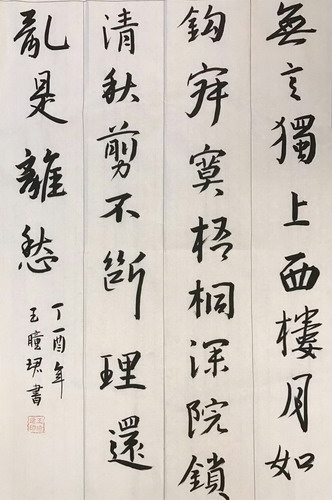 無言獨上西樓月如
鈎寂寞梧桐深院鎖
清秋剪不斷理還
亂是離愁
丁酉年
王瞳珺書